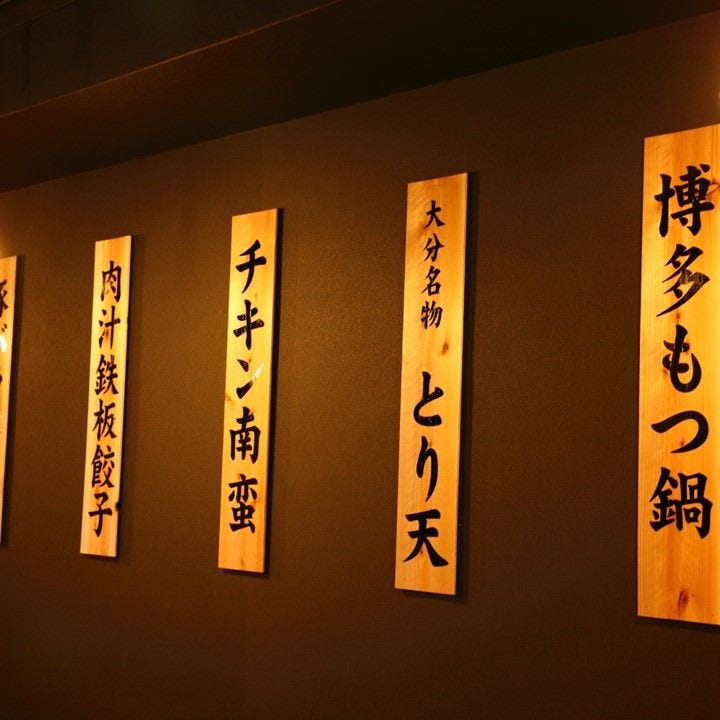 博多もつ鍋
大分名物
とり天
チキン南蛮
肉汁鉄板餃子